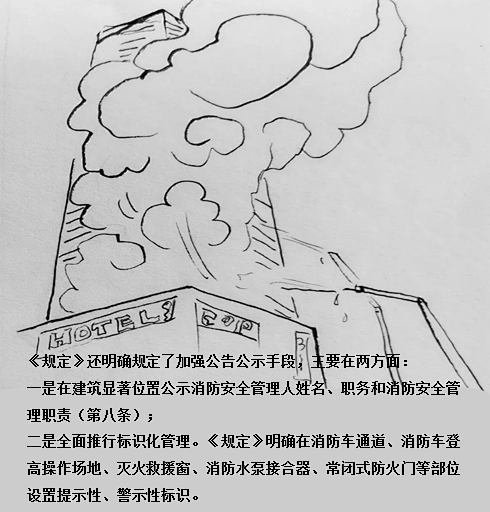 HOTEL
《规定》还明确规定了加强公告公示手段，主要在两方面：
一是在建筑显著位置公示消防安全管理人姓名、职务和消防安全管
理职责（第八条）；
二是全面推行标识化管理。《规定》明确在消防车通道、消防车登
高操作场地、灭火救援窗、消防水泵接合器、常闭式防火门等部位
设置提示性、警示性标识。